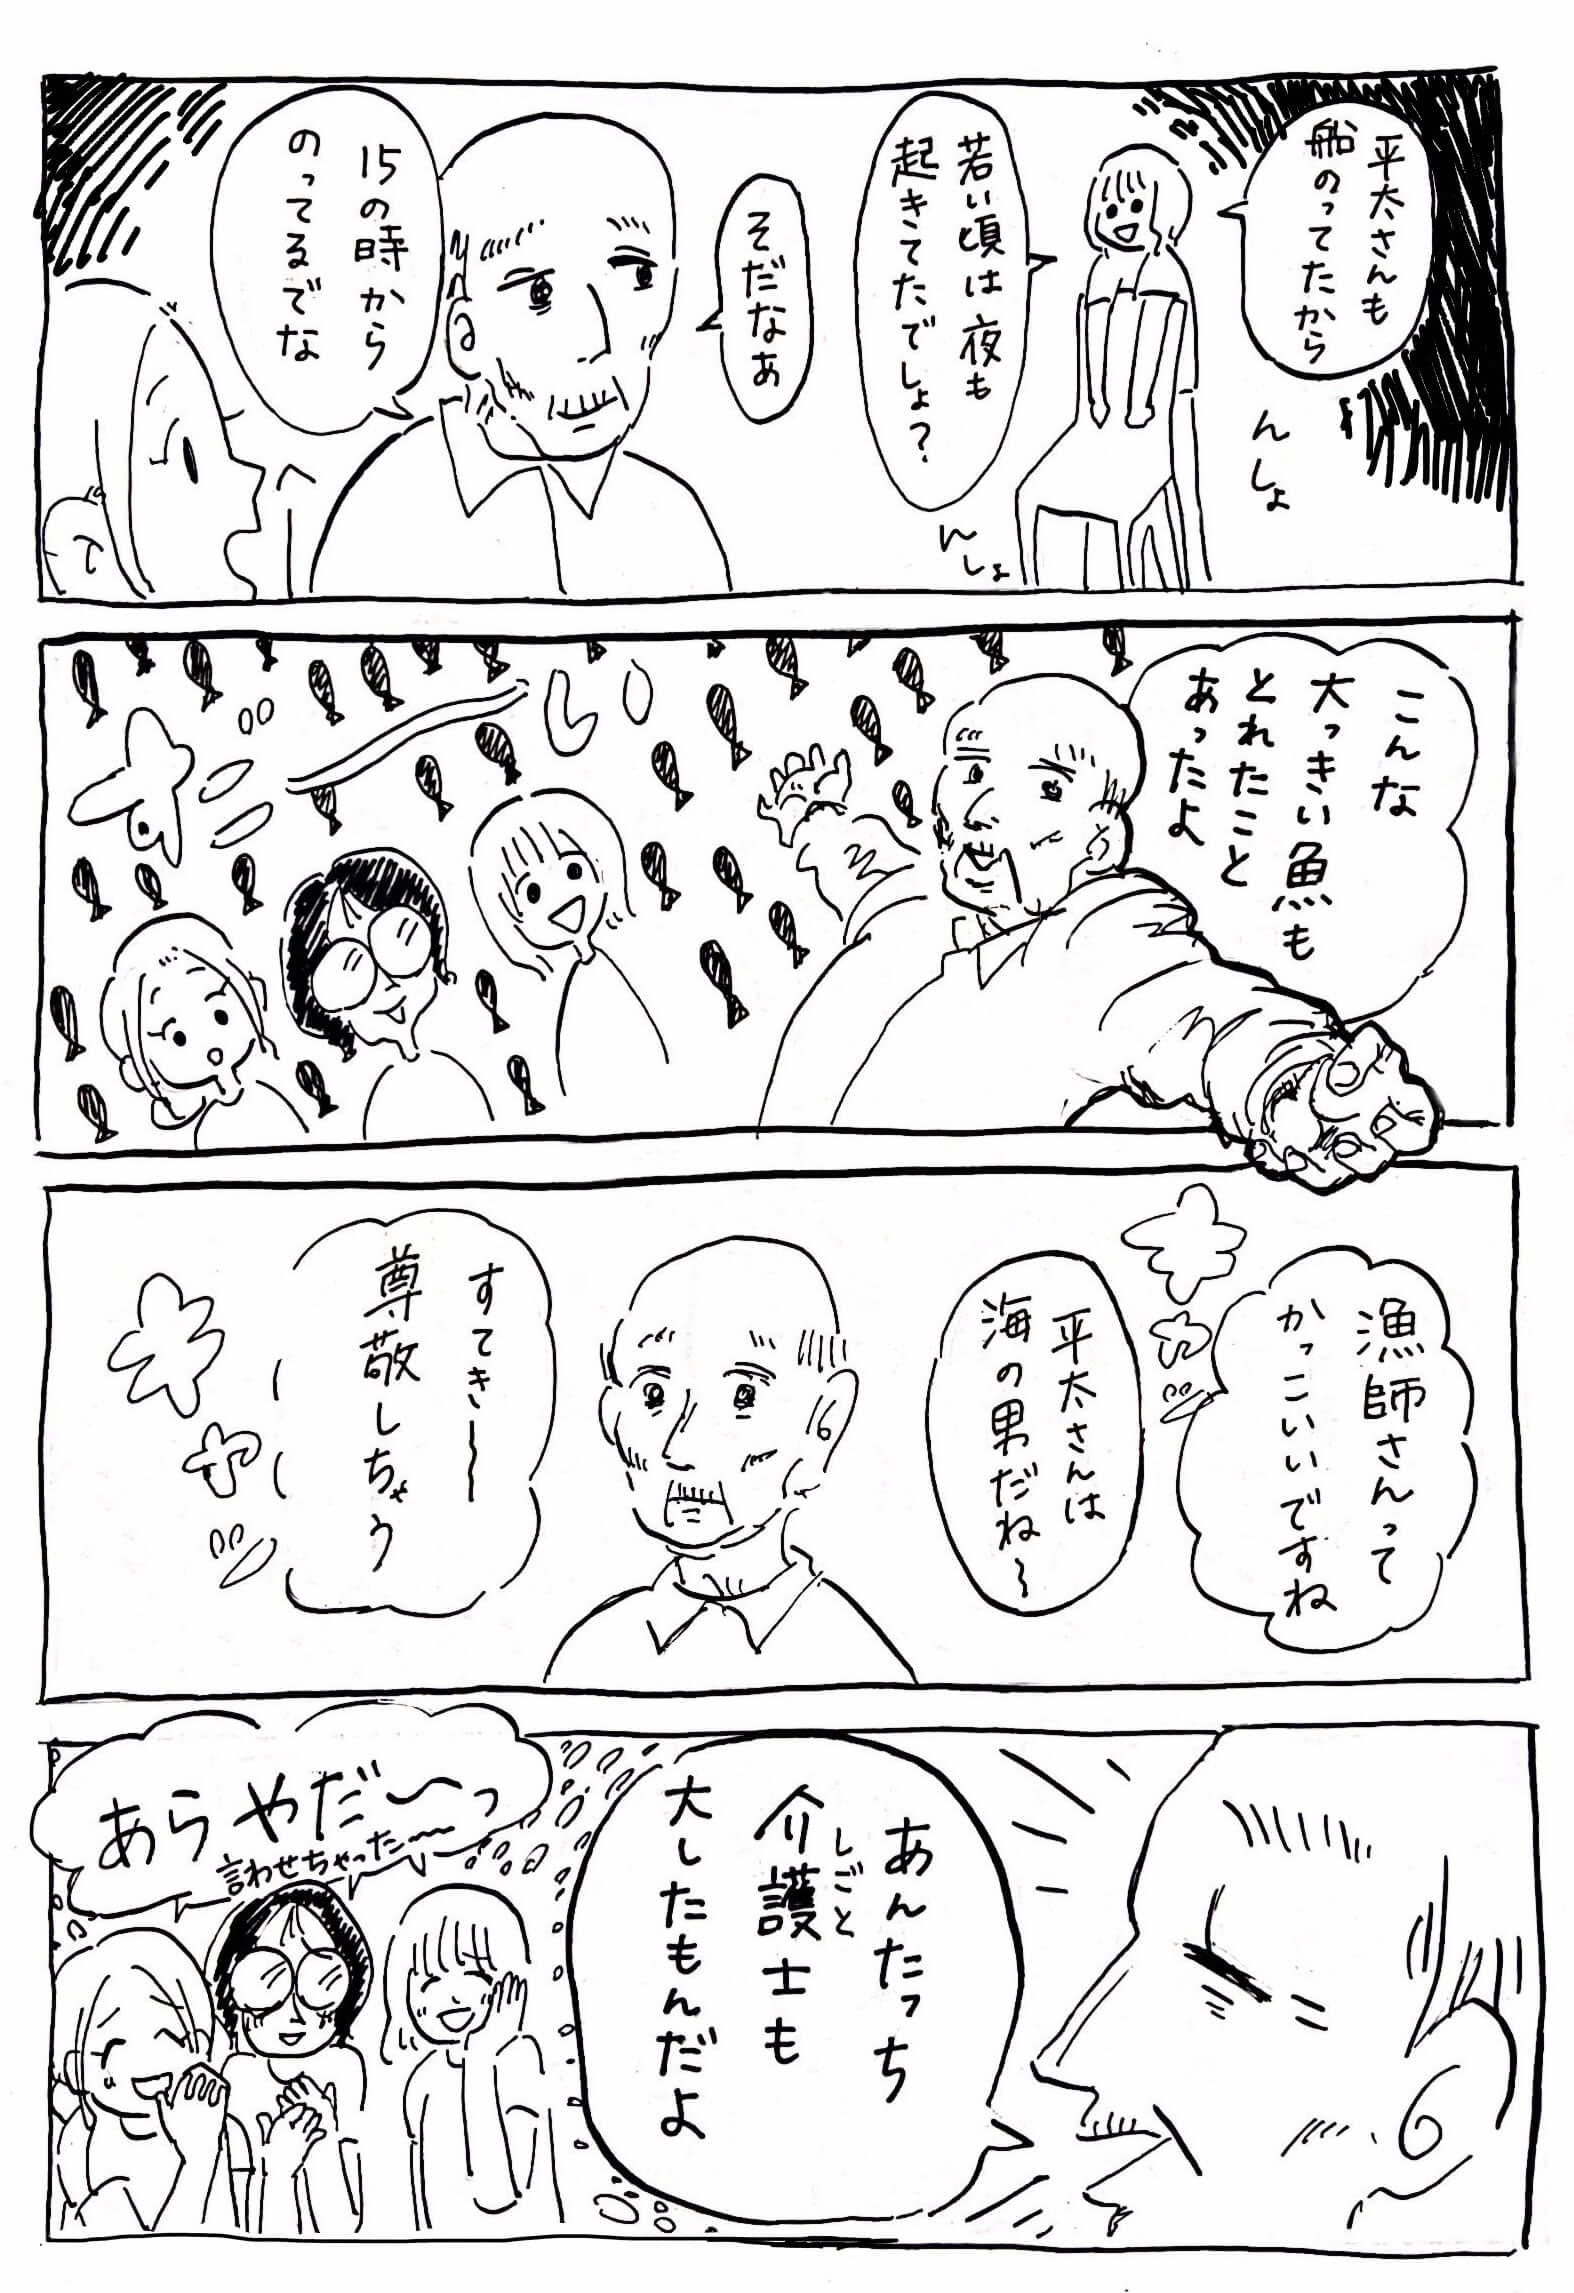 平太さんも
船のってたから
んしょ
若い頃は夜も
起きてたでしょ？
んしょ
そだなぁ
15の時から
のってるでな
こんな
大っきい魚も
とれたこと
あったよ
すごーい
漁師さんって
かっこいいですね
キャッ
平太さんは
海の男だね〜
すてき〜
尊敬しちゃう
キャッ
あんたっち
しごと
介護士も
大したもんだよ
あらやだ〜っ
言わせちゃった〜